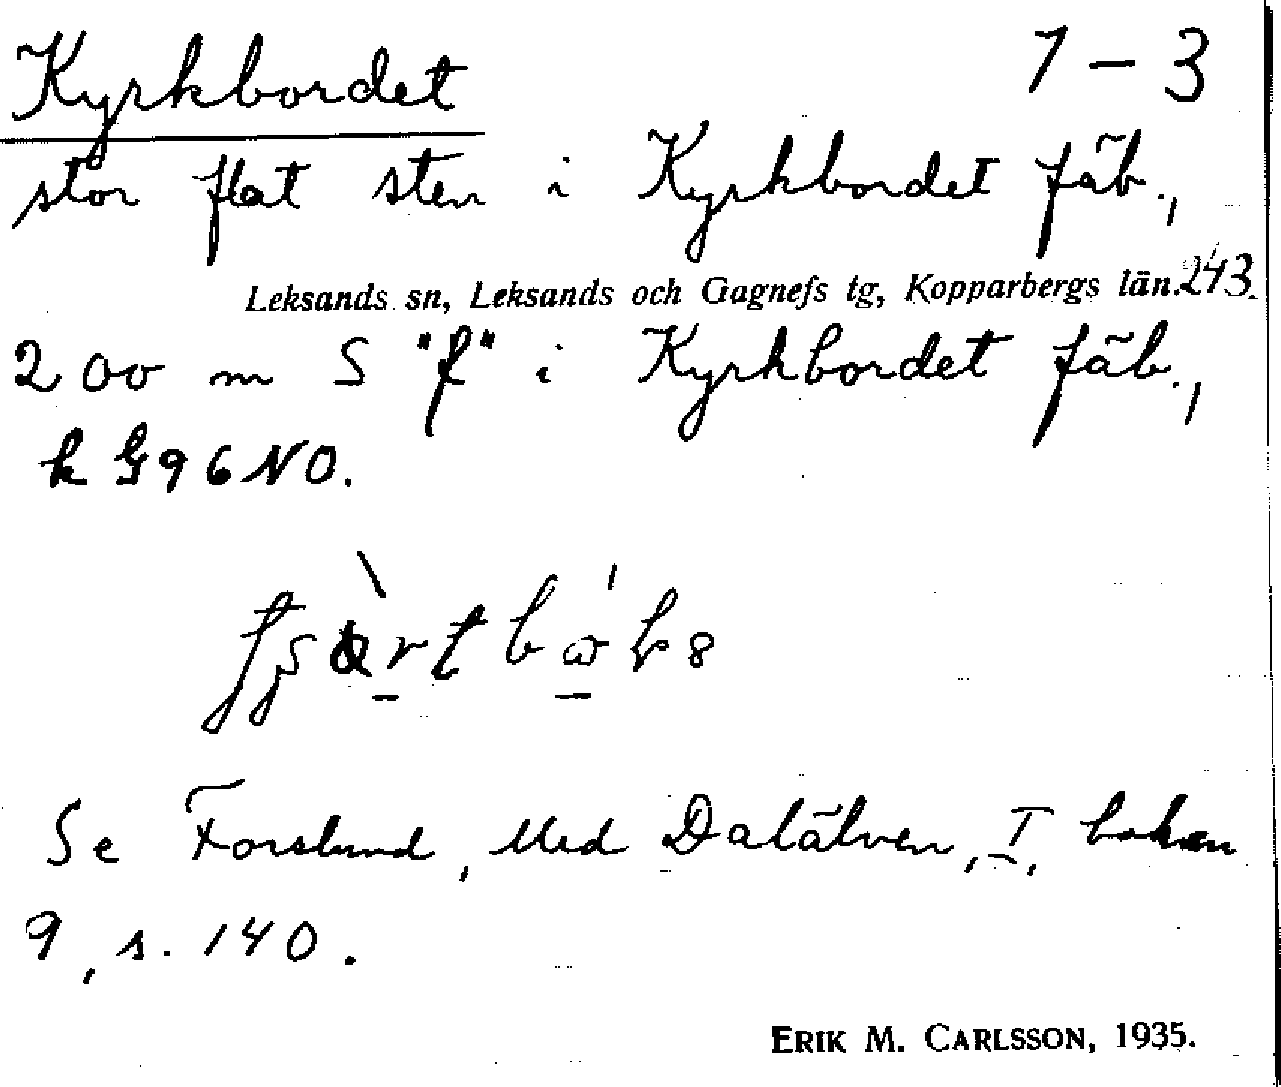 Kyrkbordet 1-3
stor flat sten i Kyrkbordet fäb.,
Leksands sn, Leksands och Gagnefs tg, Kopparbergs län. 243.
200 m S "f" i Kyrkbordet fäb.,
k G96NO.
Se Forslund, Med Dalälven, I, boken
9, s. 140.
ERIK M. CARLSSON, 1935.